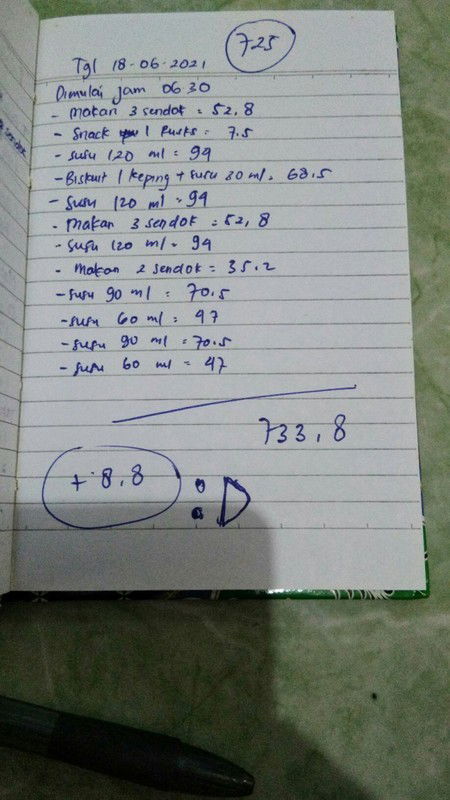 725
Tgl 18-06-2021
Dimulai jam 06 30
- Makan 3 sendok = 52,8
- Snack 1 Rusks = 7.5
- susu 120 ml = 94
- Biskuit 1 keping + susu 30 ml = 68.5
- susu 120 ml = 94
- Makan 3 sendok = 52,8
- susu 120 ml = 94
- Makan 2 sendok = 35.2
- susu 90 ml = 70.5
- susu 60 ml = 47
- susu 90 ml = 70.5
- susu 60 ml = 47
733,8
+ 8,8 :D